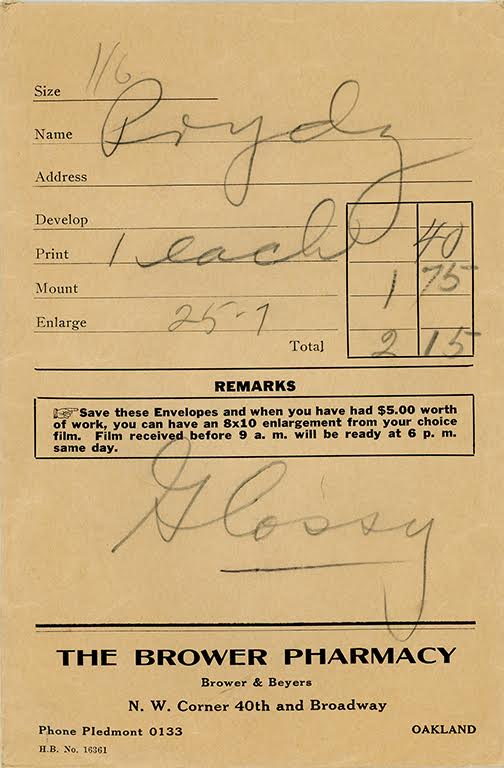 Size 116
Name
Address
Develop 40
Print 1 each
Mount 1 75
Enlarge 25-7
Total 2 15
REMARKS
☞ Save these Envelopes and when you have had $5.00 worth
of work, you can have an 8x10 enlargement from your choice
film. Film received before 9 a. m. will be ready at 6 p. m.
same day.
Glossy
THE BROWER PHARMACY
Brower & Beyers
N. W. Corner 40th and Broadway
Phone PIedmont 0133 OAKLAND
H.B. No. 16361